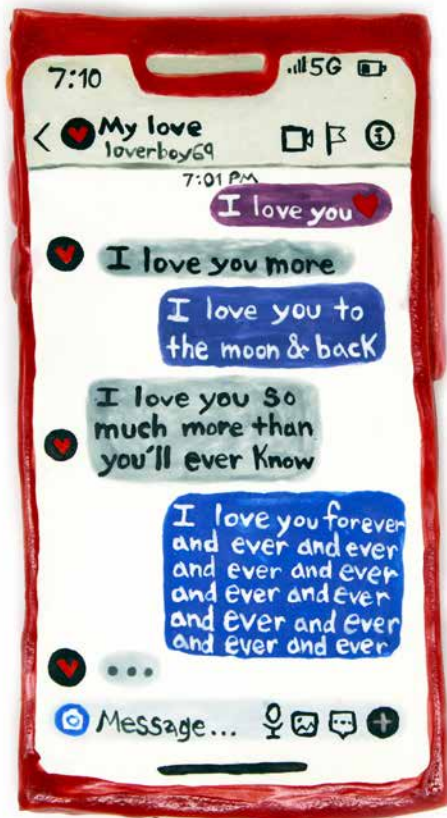 7:10
5G
My love
loverboy69
7:01 PM
I love you
I love you more
I love you to
the moon & back
I love you so
much more than
you'll ever know
I love you forever
and ever and ever
and ever and ever
and ever and ever
and ever and ever
and ever and ever
Message...